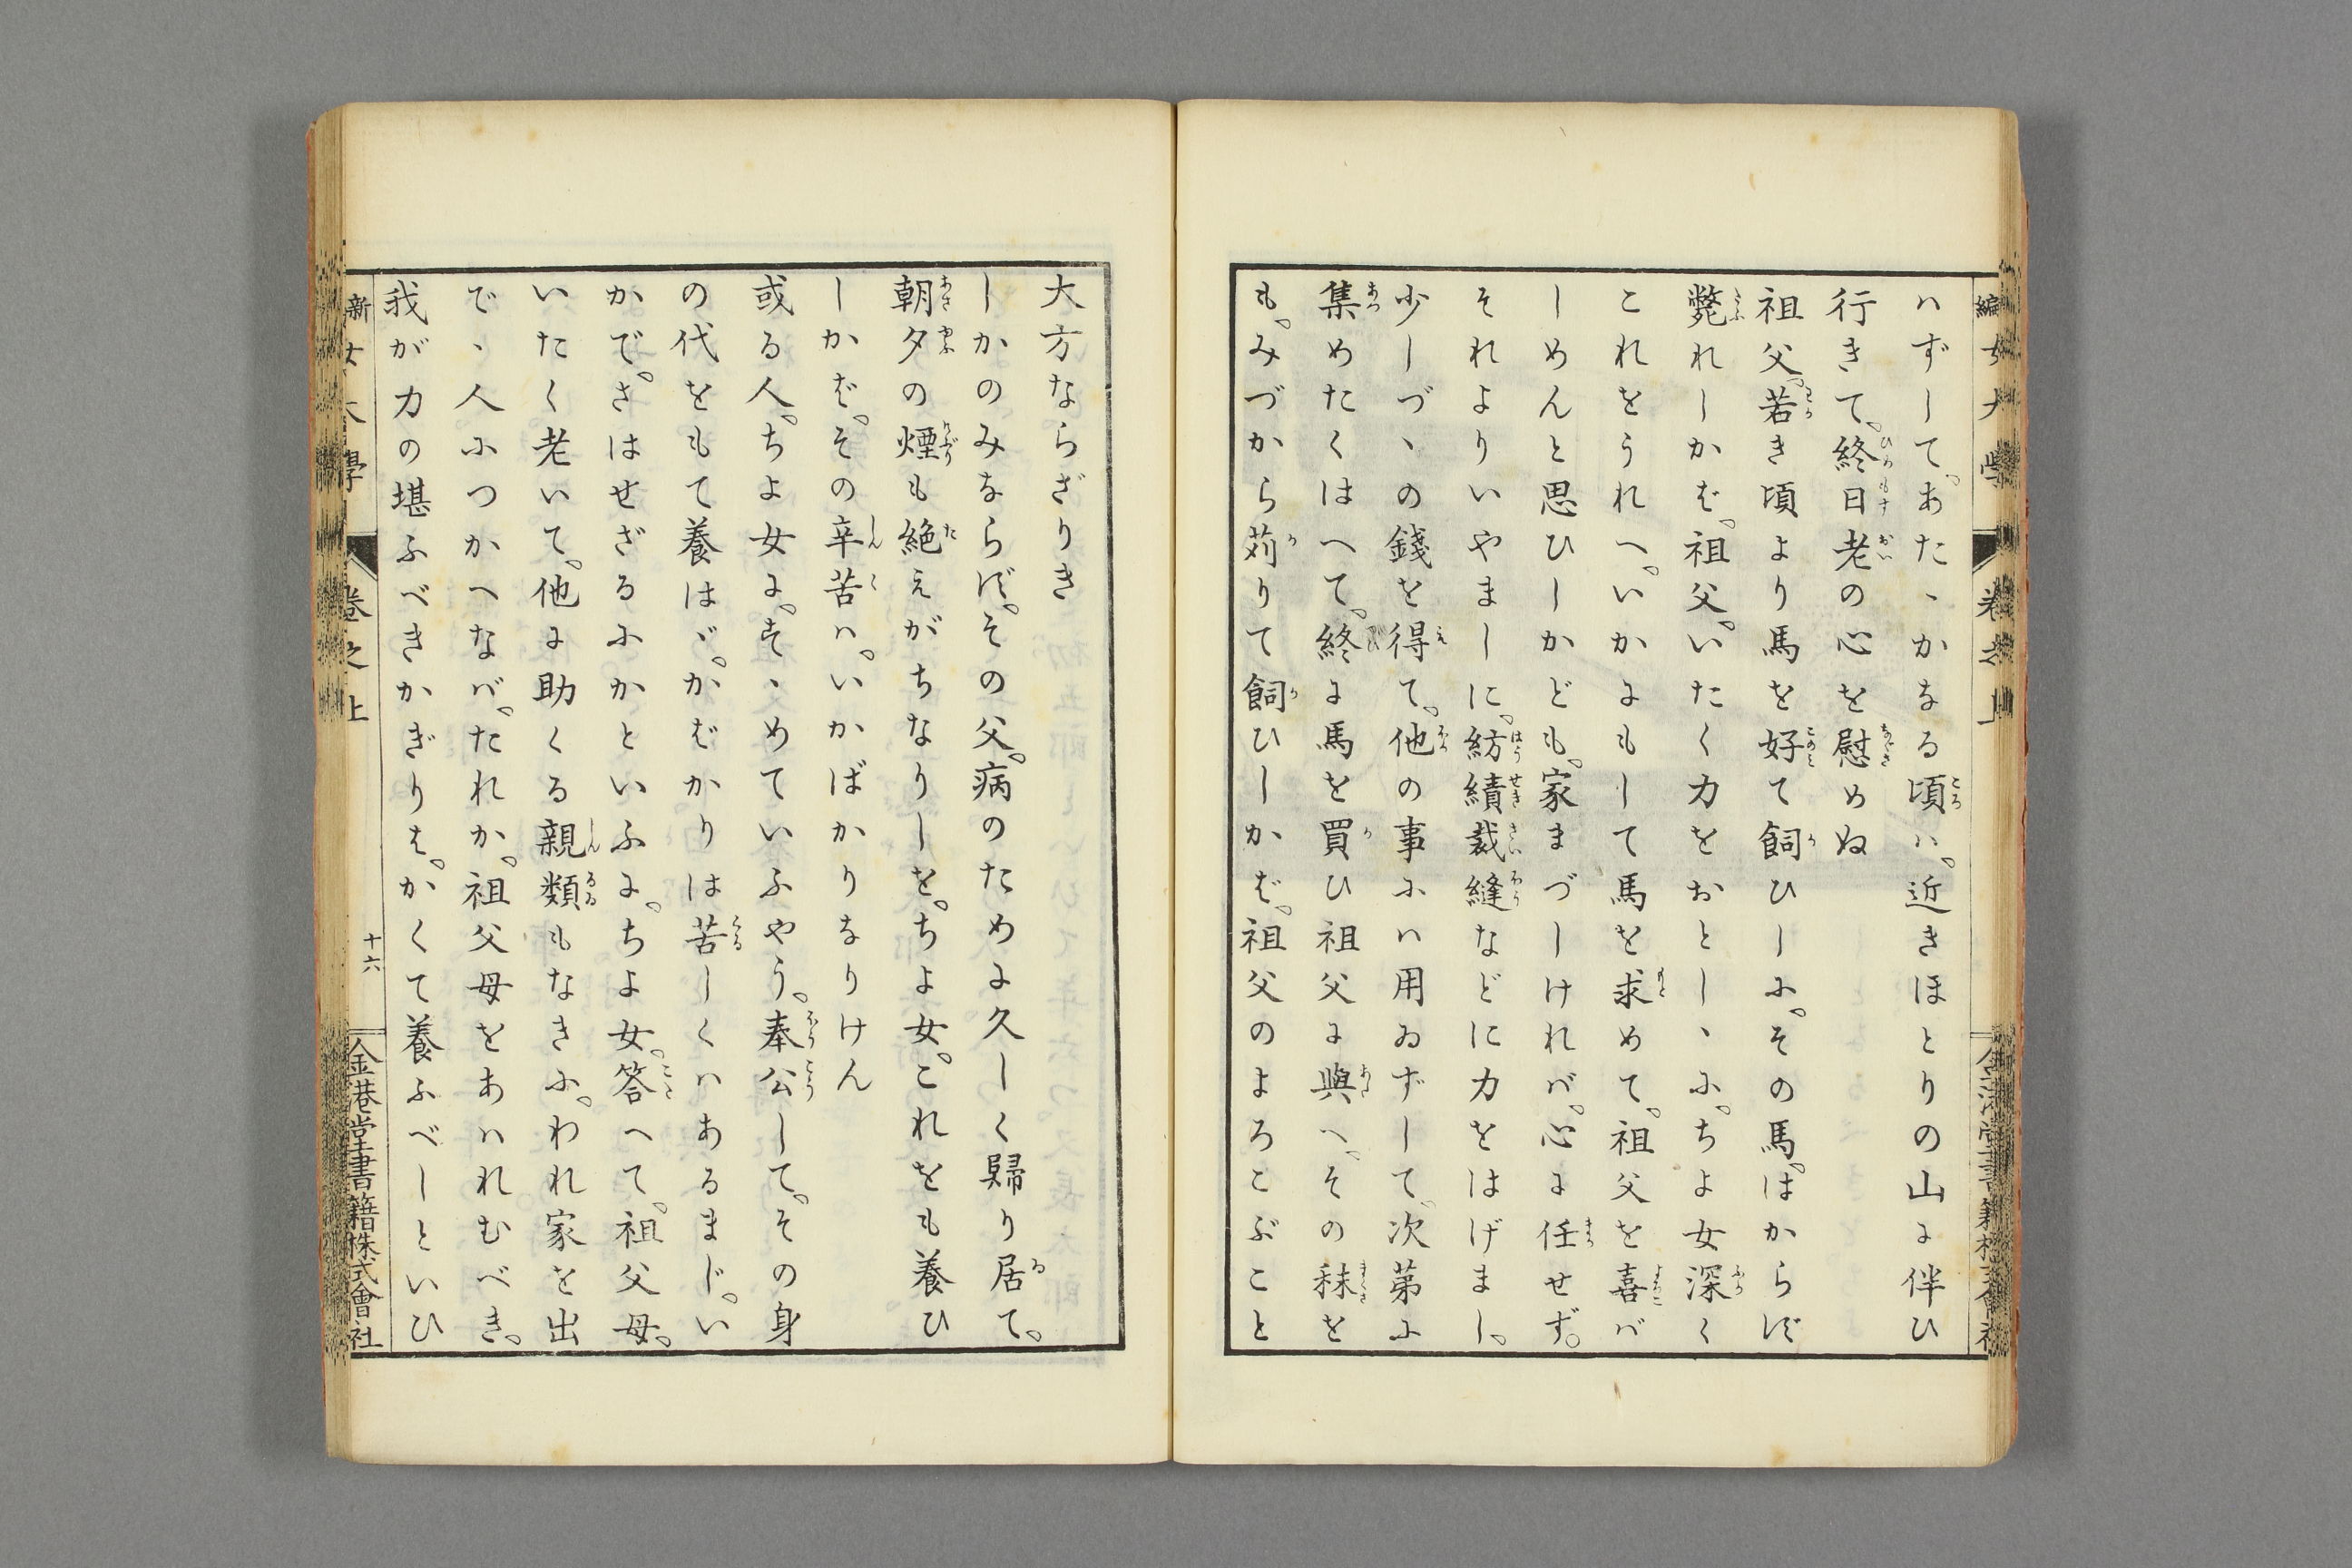 ハずして。あたゝかなる頃ハ。近きほとりの山に伴ひ
行きて。終日老の心を慰めぬ
祖父。若き頃より馬を好て飼ひしに。その馬。はからず
斃れしかば。祖父。いたく力をおとしゝに。ちよ女深く
これをうれへ。いかにもして馬を求めて。祖父を喜バ
しめんと思ひしかども。家まづしけれバ。心に任せず。
それよりいやましに。紡績裁縫などに力をはげまし。
少しづゝの錢を得て。他の事にハ用ゐずして。次第に
集めたくはへて。終に馬を買ひ祖父に與へ。その秣を
も。みづから苅りて飼ひしかば。祖父のよろこぶこと
大方ならざりき
しかのみならず。その父。病のために久しく歸り居て。
朝夕の煙も絶えがちなりしを。ちよ女。これをも養ひ
しかば。その辛苦ハ。いかばかりなりけん
或る人。ちよ女に。すゝめていふやう。奉公して。その身
の代をもて養はゞ。かばかりは苦しくハあるまじ。い
かで。さはせざるにかといふに。ちよ女。答へて。祖父母。
いたく老いて。他に助くる親類もなきに。われ家を出
でゝ人につかへなバ。たれか。祖父母をあハれむべき。
我が力の堪ふべきかぎりは。かくて養ふべしといひ
新女大學 卷之上 十六 金港堂書籍株式會社